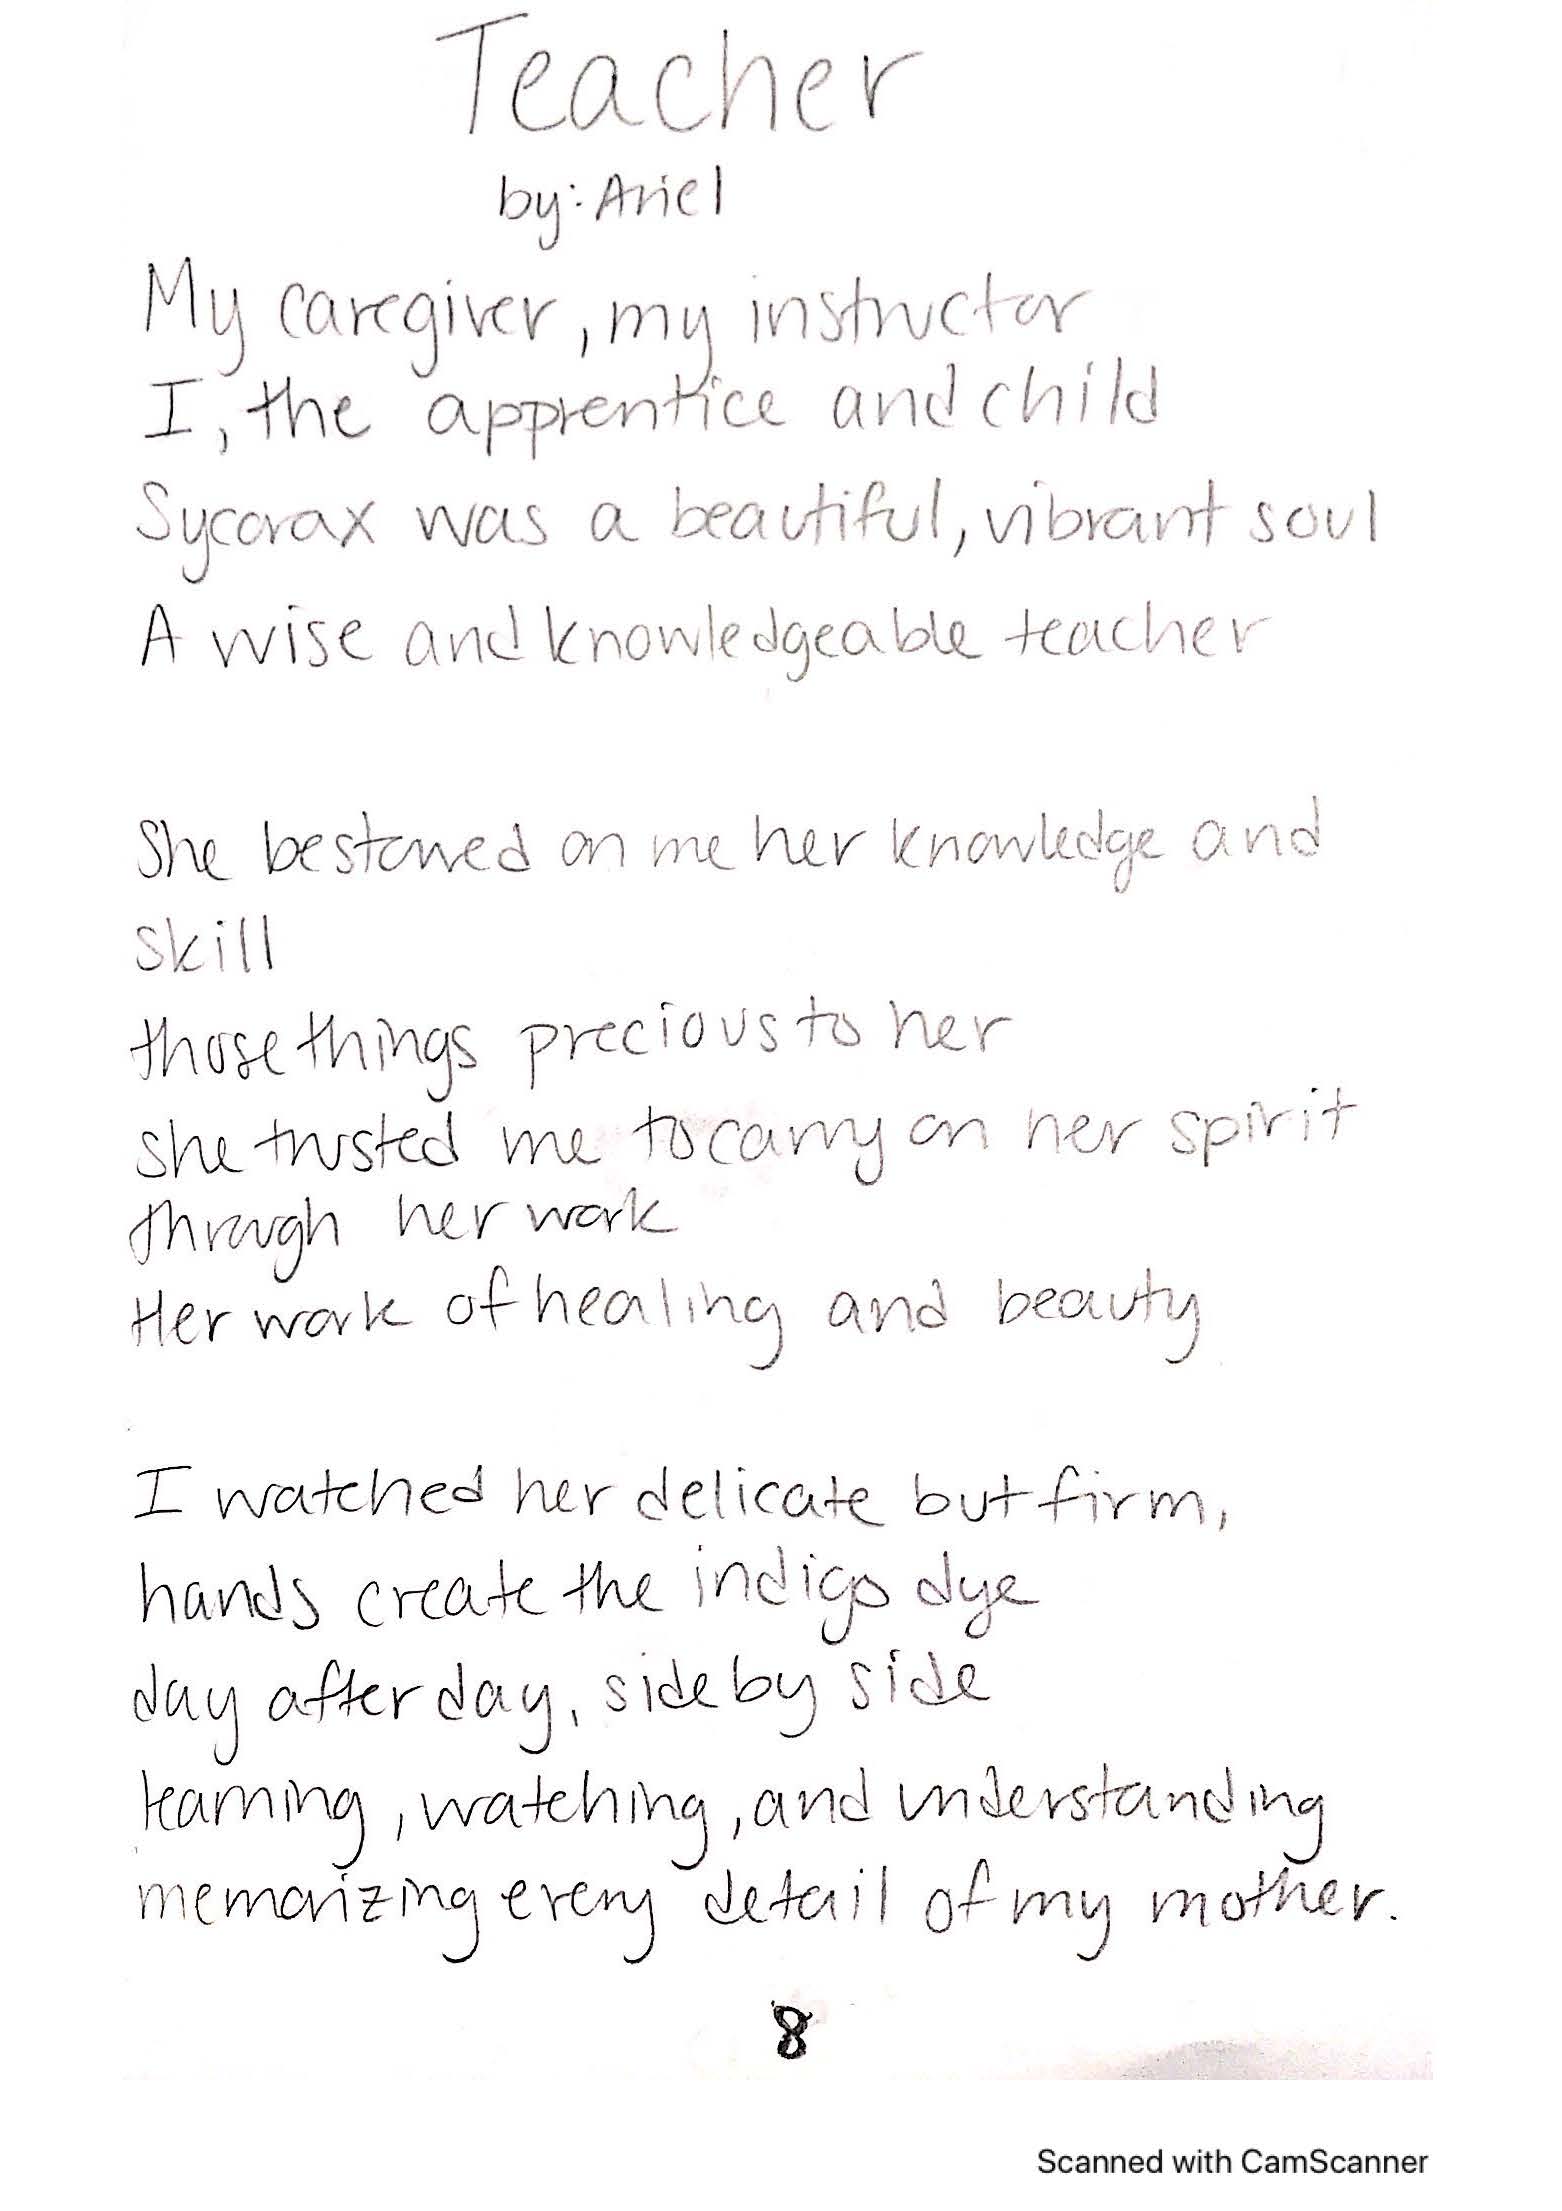 Teacher
by: Ariel
My caregiver, my instructor
I, the apprentice and child
Sycorax was a beautiful, vibrant soul
A wise and knowledgeable teacher
She bestowed on me her knowledge and
skill
those things precious to her
she trusted me to carry on her spirit
through her work
Her work of healing and beauty
I watched her delicate but firm,
hands create the indigo dye
day after day, side by side
learning, watching, and understanding
memorizing every detail of my mother.
8
Scanned with CamScanner